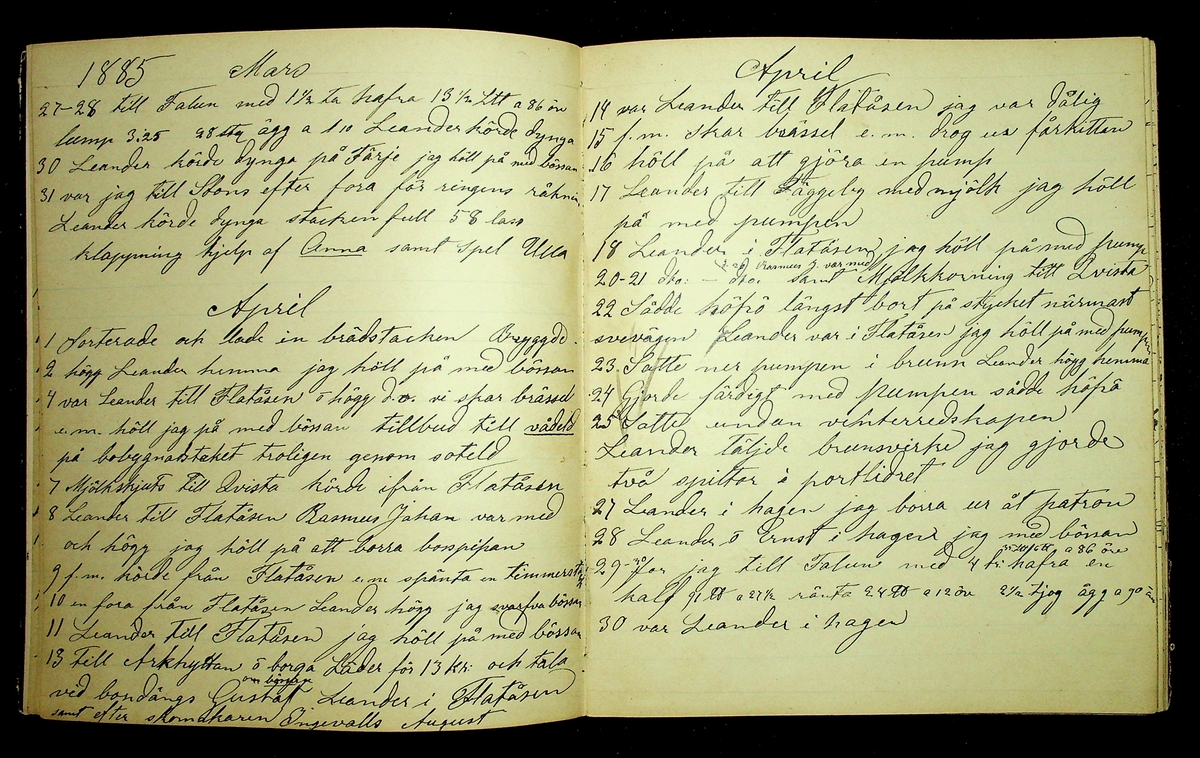 1885 Mars
27-28 till Falun med 1 1/2 ta hafra 13 1/2 Ltt a 86 öre
lump 3.25 28 stg ägg a 1 10 Leander körde dynga
30 Leander körde dynga på Färje jag höll på med bössan
31 var jag till Sbons efter fora för ringens räkne
Leander körde dynga stacken full 58 lass
klappning hjelp af Anna samt Spel Ulla
April
1 Sorterade och lade in brädstacken Bryggde.
2 högg Leander hemma jag höll på med bössan
4 var Leander till Flatåsen ö högg d.o. vi skar brässel
e.m. höll jag på med bössan tillbud till vådeld
på bobygnastaket troligen genom soteld
7 Mjölkskjuts till Qvista körde ifrån Flatåsen
8 Leander till Flatåsen Rasmus Johan var med
och högg jag höll på att borra bösspipan
9 f.m. körde från Flatåsen e.m spänta en timmerst
10 en fora från Flatåsen Leander högg jag svarfva bössan
11 Leander till Flatåsen jag höll på med bössan
13 till Arkhyttan ö borga Läder för 13 kr: och tala
om bössan
ved bondängs Gustaf Leander i Flatåsen
samt efter skomakaren Ingevalls August
April
14 var Leander till Flatåsen jag var dålig
15 f.m. skar brässel e.m. drog ur fårkittan
16 höll på att gjöra en pump
17 Leander till Fäggeby med mjölk jag höll
på med pumpen
18 Leander i Flatåsen jag höll på med pump
d 20 Rasmus J. var med
20-21 dto: - dto: samt Mjölkkorning till Qvista
22 Sådde höfrö längst bort på stycket närmast
svevägen Leander var i Flatåsen jag höll på med pumpen
23. Satte ner pumpen i brunn Leander högg hemma
24 Gjorde färdigt med pumpen sådde höfrö
25 Satte undan vinterredskapen
Leander täljde brunsvirke jag gjorde
två spiltor i portlidret
27 Leander i hagen jag borra ur åt patron
28 Leander ö Ernst i hagen jag med bössan
a 86 öre
29- for jag till Falun med 4 tr hafra en
kalf 71 tt a 27 1/2 ränta 28 tt a 12 öre 2 1/2 tjog ägg a 90
30 var Leander i hagen